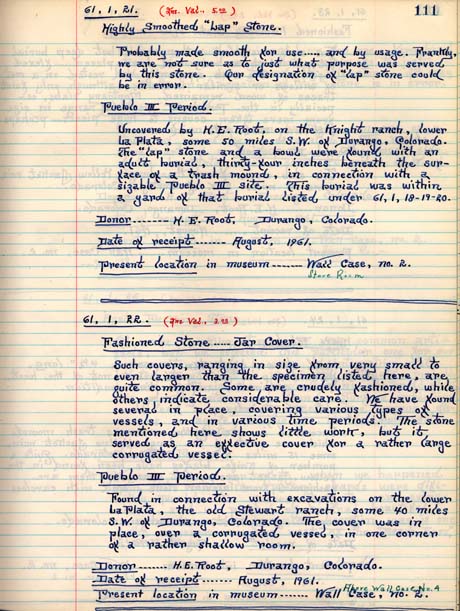 111
61, 1, 21. (Ins. Val., 5.00)
Highly Smoothed "Lap" Stone.
Probably made smooth for use.... and by usage. Frankly,
we are not sure as to just what purpose was served
by this stone. Our designation of "lap" stone could
be in error.
Pueblo III Period.
Uncovered by H.E. Root, on the Knight ranch, lower
La Plata, some 50 miles S.W. of Durango, Colorado.
The "lap" stone and a bowl were found with an
adult burial, thirty-four inches beneath the sur-
face of a trash mound, in connection with a
sizable Pueblo III site. This burial was within
a yard of that burial listed under 61, 1, 18-19-20.
Donor------- H.E. Root, Durango, Colorado.
Date of receipt------ August, 1961.
Present location in museum------ Wall Case, no. 2.
Store Room
61, 1, 22. (Ins. Val., 2.00)
Fashioned Stone ..... Jar Cover.
Such covers, ranging in size from very small to
even larger than the specimen listed here, are
quite common. Some are crudely fashioned, while
others, indicate considerable care. We have found
several in place, covering various types of
vessels, and in various time periods. The stone
mentioned here shows little work, but it
served as an effective cover for a rather large
corrugated vessel.
Pueblo III Period.
Found in connection with excavations on the lower
La Plata, the old Stewart ranch, some 40 miles
S.W. of Durango, Colorado. The cover was in
place, over a corrugated vessel, in one corner
of a rather shallow room.
Donor------ H.E. Root, Durango, Colorado.
Date of receipt----- August, 1961.
Above Wall Case No. 4
Present location in museum------ Wall Case, no. 2.